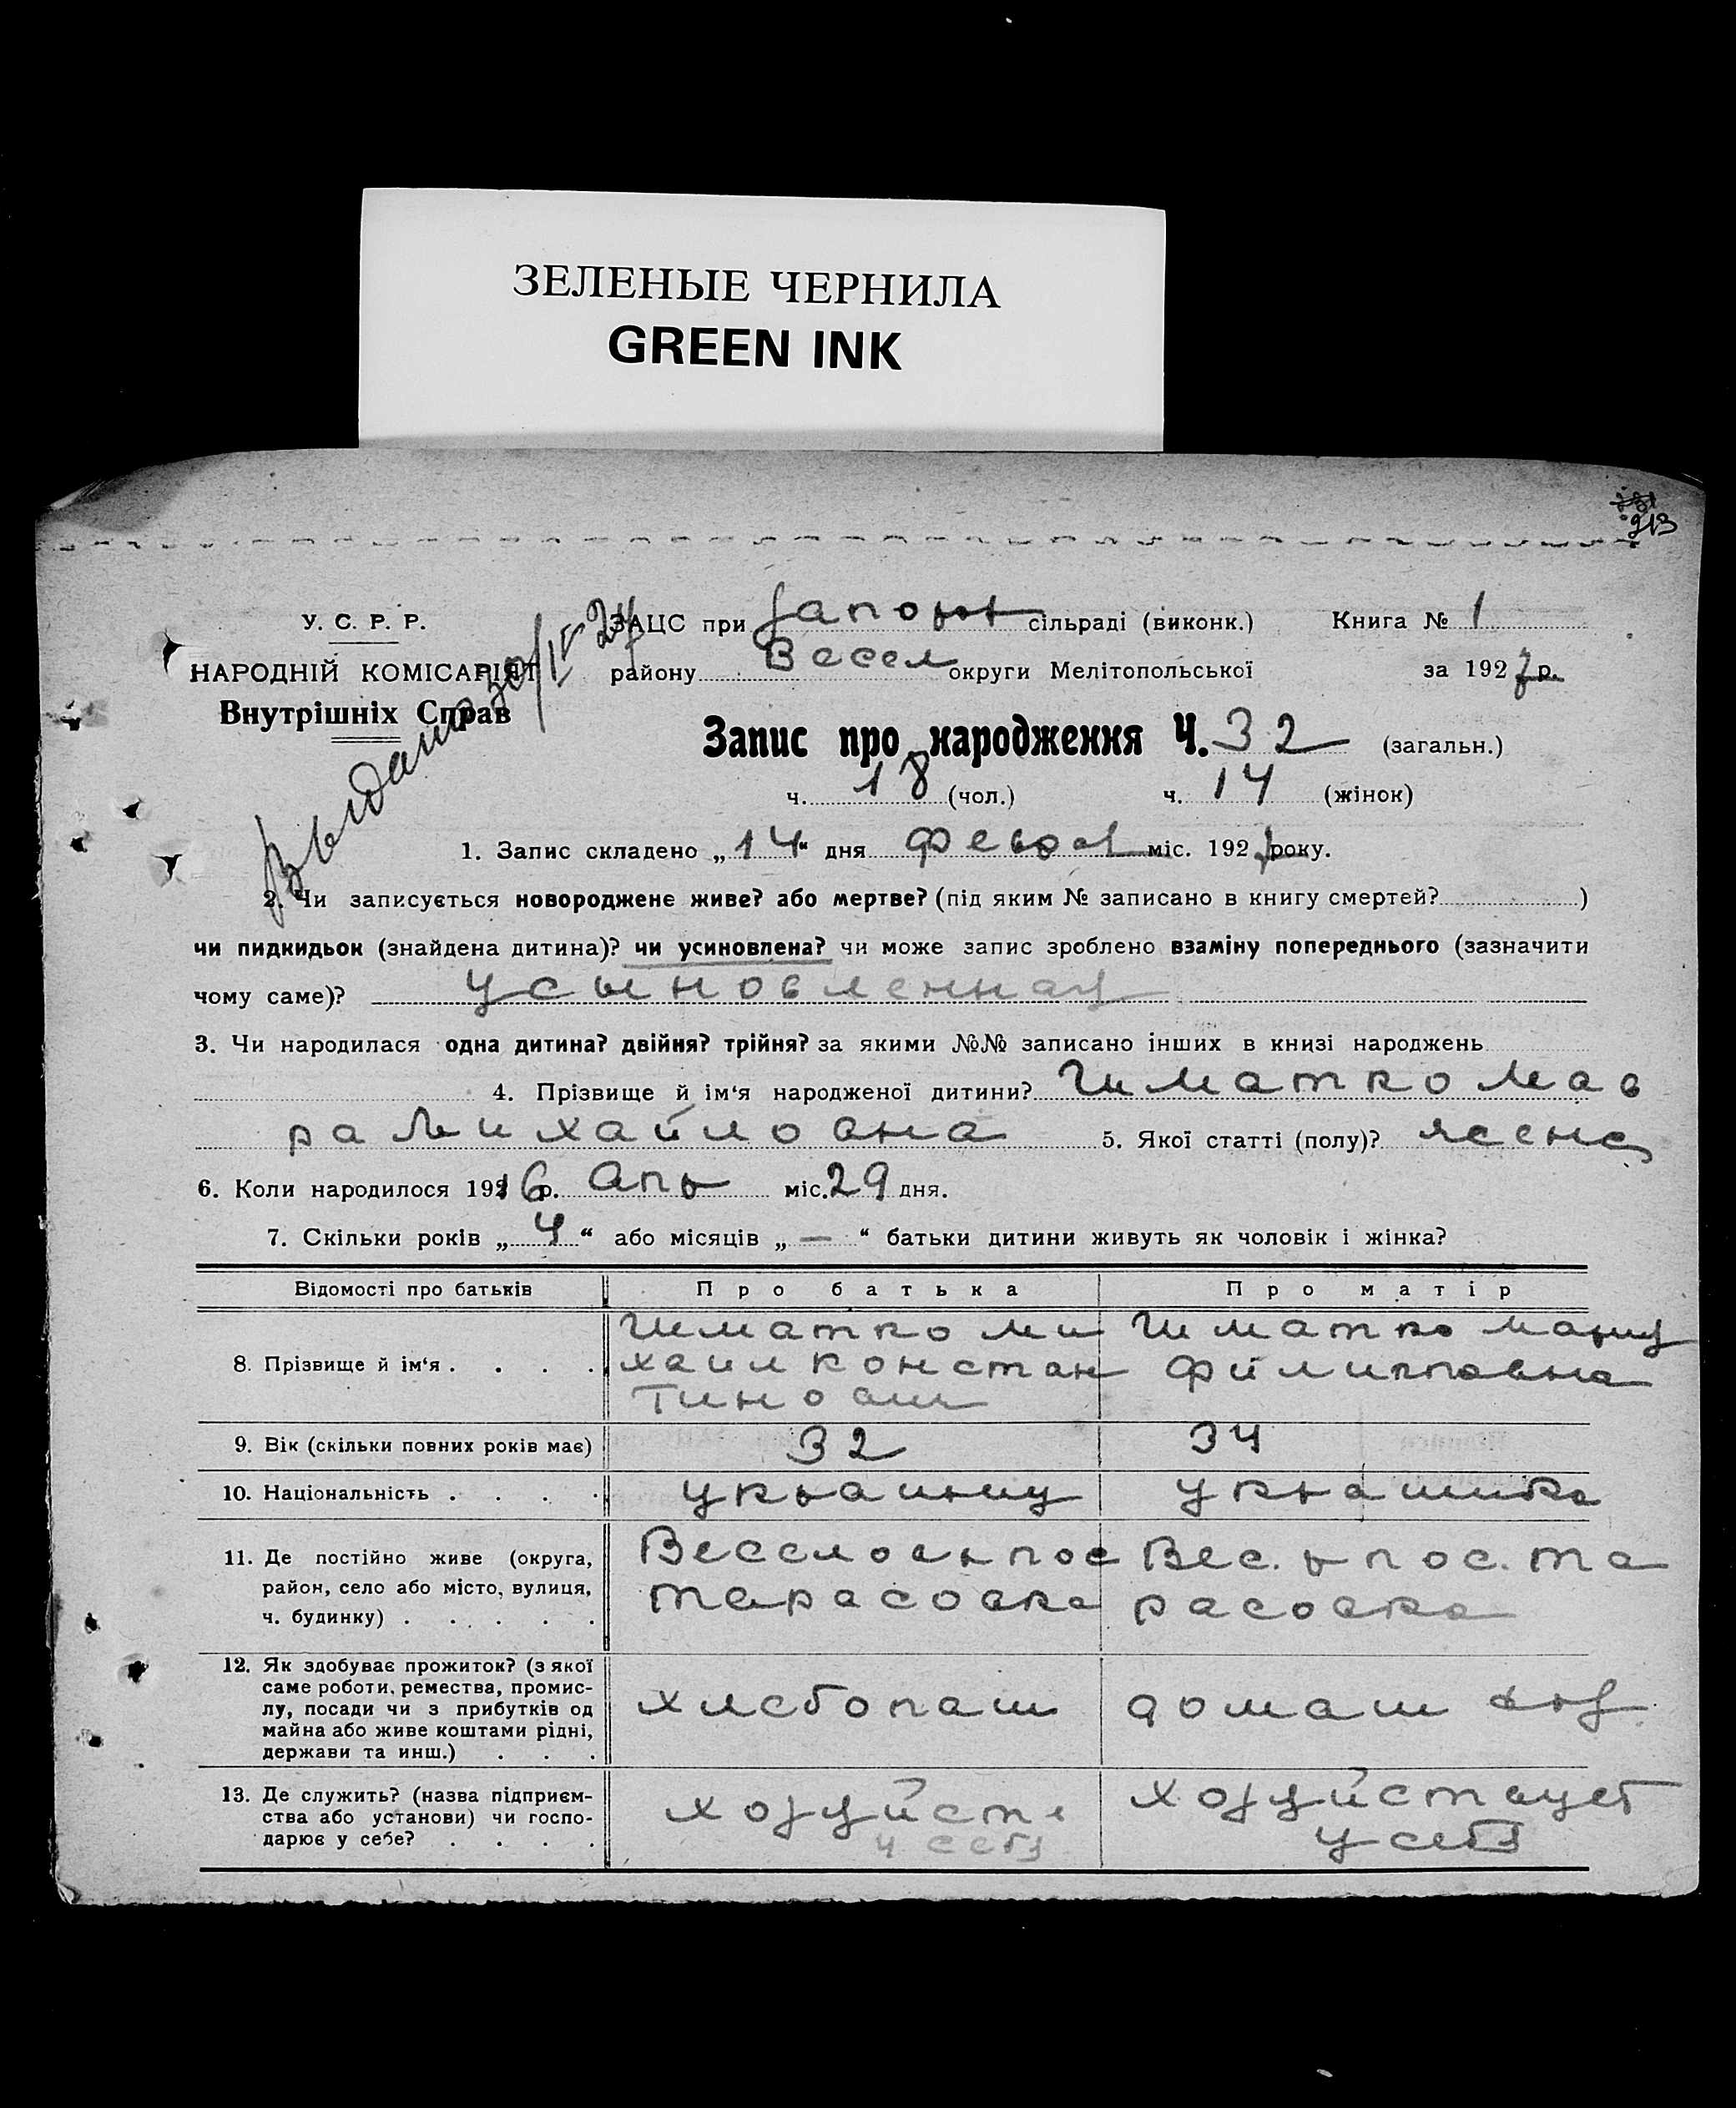 ЗЕЛЕНЫЕ ЧЕРНИЛА
GREEN INK
213
У. С. Р. Р.
НАРОДНІЙ КОМІСАРІЯТ
Внутрішніх Справ
Выдано 30/IV 27
ЗАЦС при Запорож сільраді (виконк.) Книга № 1
району Весел округи Мелітопольської за 1927 р.
Запис про народження Ч. 32 (загальн.)
ч. 18 (чол.) ч. 14 (жінок)
1. Запис складено „14“ дня Феврал міс. 1927 року.
2. Чи записується новороджене живе? або мертве? (під яким № записано в книгу смертей? )
чи пидкидьок (знайдена дитина)? чи усиновлена? чи може запис зроблено взаміну попереднього (зазначити
чому саме)? усыновленная
3. Чи народилася одна дитина? двійня? трійня? за якими №№ записано інших в книзі народжень
4. Прізвище й ім‘я народженої дитини? Шматко Мав
ра Михайловна 5. Якої статті (полу)? женс
6. Коли народилося 1916 р. Апр міс. 29 дня.
7. Скільки років „4“ або місяців „—“ батьки дитини живуть як чоловік і жінка?
Відомості про батьків Про батька Про матір
8. Прізвище й ім‘я . . . . Шматко Ми Шматко Мария
хаил Констан Филипповна
тинович
9. Вік (скільки повних років має) 32 34
10. Національність . . . . украинец украинка
11. Де постійно живе (округа, Веселоврпос Вес. р пос. Та
район, село або місто, вулиця, Тарасовка расовка
ч. будинку) . . . . .
12. Як здобуває прожиток? (з якої
саме роботи, ремества, промис-
лу, посади чи з прибутків од хлебопаш домаш
майна або живе коштами рідні,
держави та инш.) . . .
13. Де служить? (назва підприєм- хозуйств хозуйствует
ства або установи) чи госпо- у себя у себя
дарює у себе? . . . .